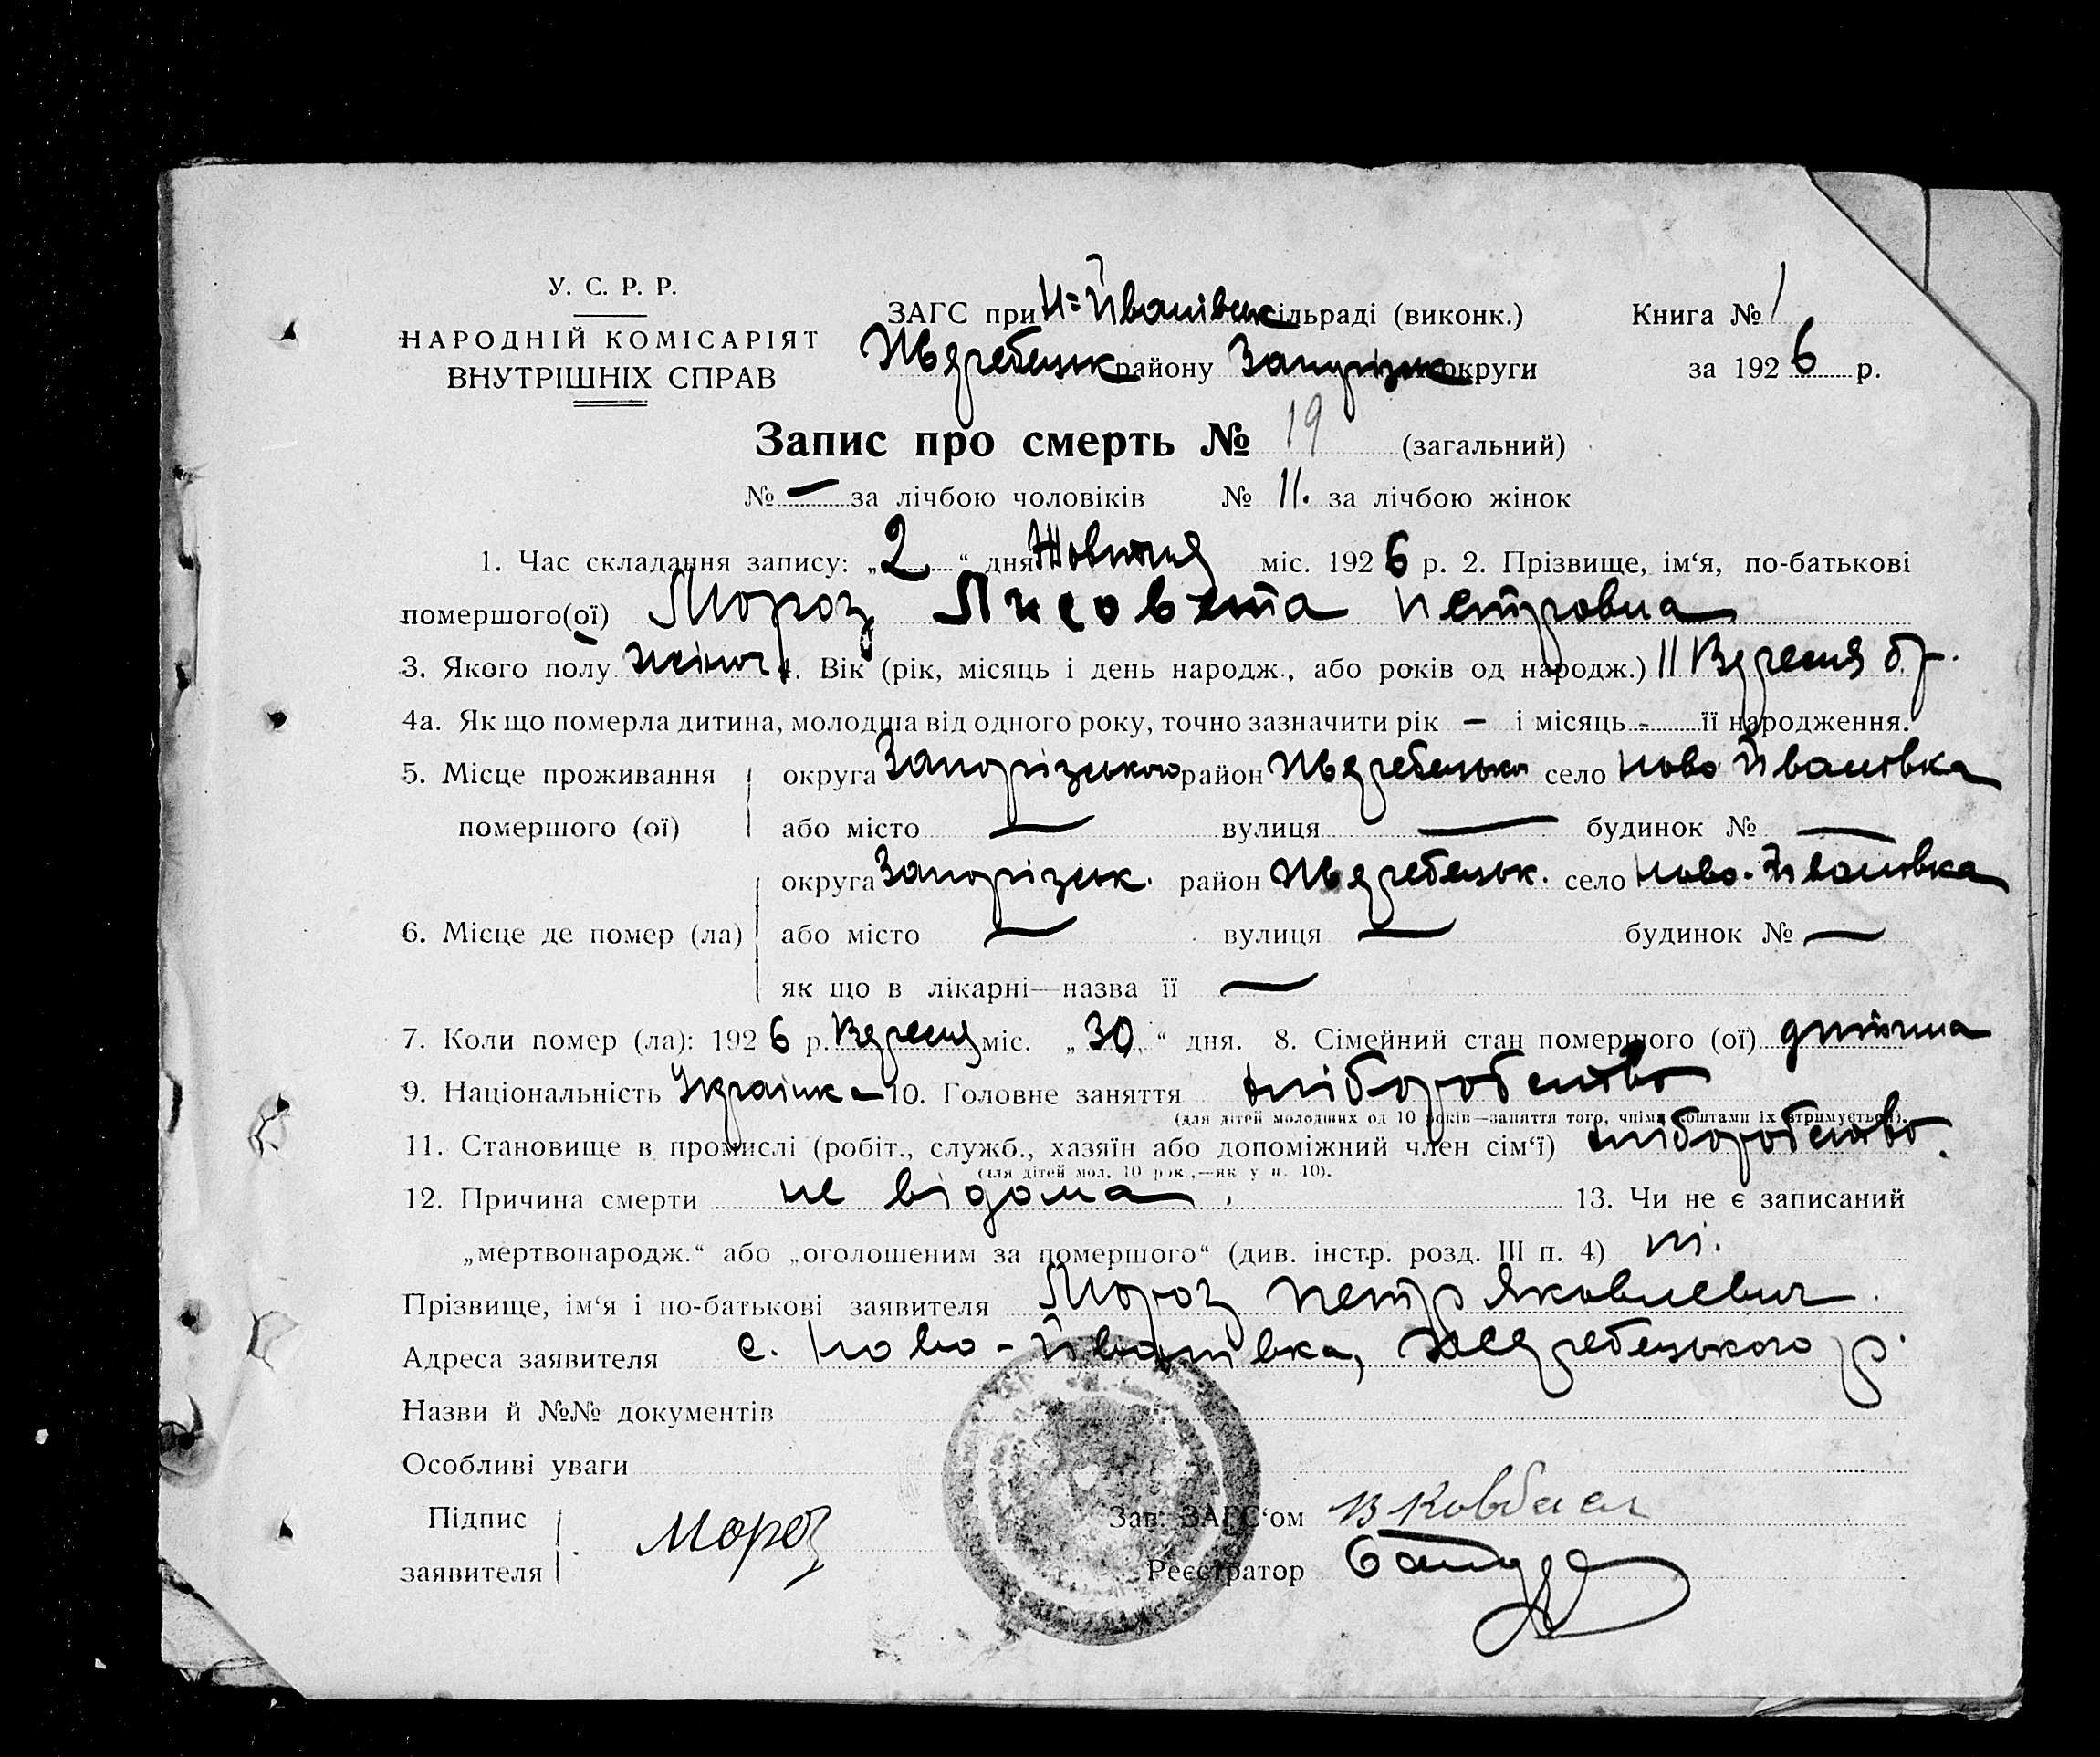 У. С. Р. Р.
НАРОДНІЙ КОМІСАРІЯТ
ВНУТРІШНІХ СПРАВ
ЗАГС при Н=Йванівськ сільраді (виконк.)
Жеребецьк району Запоріжськ округи
Книга № 1
за 1926 р.
Запис про смерть № 19 (загальний)
№ — за лічбою чоловіків № 11. за лічбою жінок
1. Час складання запису: „2“ дня Жовтня міс. 1926 р. 2. Прізвище, ім‘я, по-батькові
помершого(ої) Мороз Лисовета Петровна
3. Якого полу жіноч 4. Вік (рік, місяць і день народж., або років од народж.) 11 Вересня б.р.
4а. Як що померла дитина, молодша від одного року, точно зазначити рік — і місяць - її народження.
5. Місце проживання помершого (ої)
округа Запорізького район Жеребецько село Ново Йванівка
або місто — вулиця — будинок № —
6. Місце де помер (ла)
округа Запорізськ. район Жеребецьк. село Ново-Йванівка
або місто — вулиця — будинок № —
як що в лікарні—назва її —
7. Коли помер (ла): 1926 р. Вересня міс. „30“ дня. 8. Сімейний стан помершого (ої) дитина
9. Національність Українка 10. Головне заняття хліборобство
(для дітей молодших од 10 років—заняття того, чиїми коштами їх утримується).
11. Становище в промислі (робіт., служб., хазяїн або допоміжний член сім‘ї) хліборобство.
(для дітей мол. 10 рок.,—як у п. 10).
12. Причина смерти не відома. 13. Чи не є записаний
„мертвонародж.“ або „оголошеним за помершого“ (див. інстр. розд. III п. 4) ні.
Прізвище, ім‘я і по-батькові заявителя Мороз Петр Яковлевич.
Адреса заявителя с. Ново-Йванівка, Жеребецького р.
Назви й №№ документів
Особливі уваги
Підпис заявителя Мороз
Зав. ЗАГС‘ом
Реєстратор